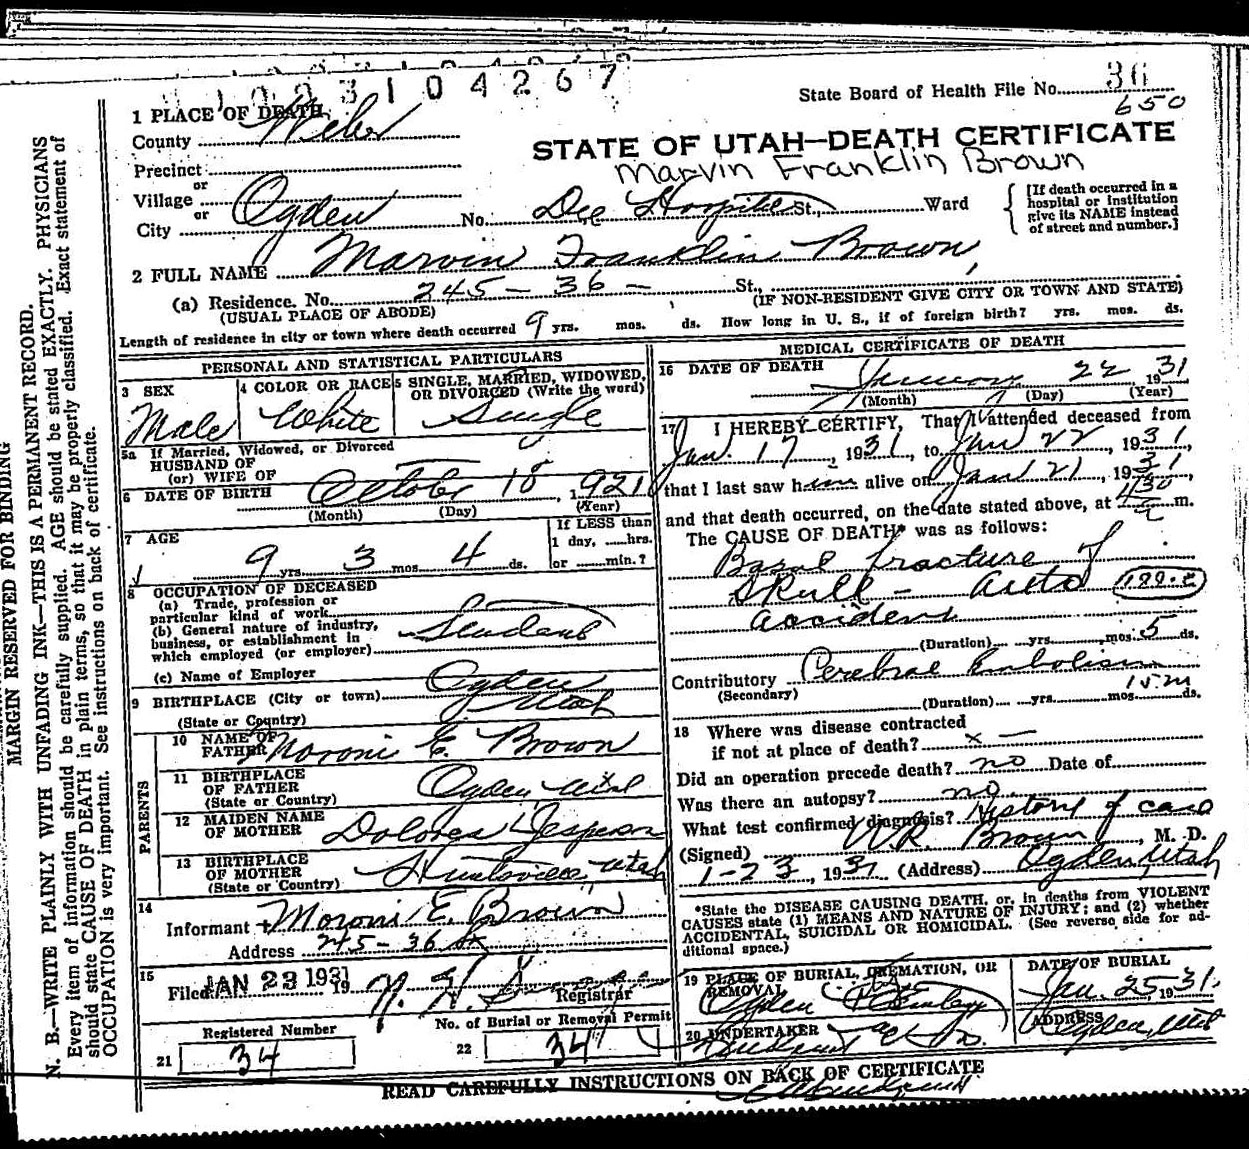 104267
State Board of Health File No. 36
650
1 PLACE OF DEATH
County Weber
STATE OF UTAH—DEATH CERTIFICATE
Marvin Franklin Brown
Precinct
or
Village
or
City Ogden No. Dee Hospital St., Ward
[If death occurred in a hospital or institution give its NAME instead of street and number.]
2 FULL NAME Marvin Franklin Brown,
(a) Residence. No. 245 - 36 - St.,
(USUAL PLACE OF ABODE) (IF NON-RESIDENT GIVE CITY OR TOWN AND STATE)
Length of residence in city or town where death occurred 9 yrs. mos. ds. How long in U. S., if of foreign birth? yrs. mos. ds.
PERSONAL AND STATISTICAL PARTICULARS
3 SEX Male
4 COLOR OR RACE White
5 SINGLE, MARRIED, WIDOWED, OR DIVORCED (Write the word) Single
5a If Married, Widowed, or Divorced
HUSBAND OF
(or) WIFE OF
6 DATE OF BIRTH October 18, 1921
(Month) (Day) (Year)
7 AGE
9 yrs. 3 mos. 4 ds.
If LESS than
1 day, ......hrs.
or ......min.?
8 OCCUPATION OF DECEASED
(a) Trade, profession or
particular kind of work
(b) General nature of industry,
business, or establishment in
which employed (or employer)
Student
(c) Name of Employer
9 BIRTHPLACE (City or town) Ogden
(State or Country) Utah
PARENTS
10 NAME OF FATHER Moroni E. Brown
11 BIRTHPLACE OF FATHER (State or Country) Ogden Utah
12 MAIDEN NAME OF MOTHER Dolores Jesperson
13 BIRTHPLACE OF MOTHER (State or Country) Huntsville Utah
14
Informant Moroni E. Brown
Address 245 - 36 St
15
Filed JAN 23 1931 19 Registrar
Registered Number
21 34
No. of Burial or Removal Permit
22 34
MEDICAL CERTIFICATE OF DEATH
16 DATE OF DEATH January 22 1931
(Month) (Day) (Year)
17 I HEREBY CERTIFY, That I attended deceased from
Jan. 17, 1931, to Jan 22, 1931,
that I last saw him alive on Jan 21, 1931,
and that death occurred, on the date stated above, at 430 a m.
The CAUSE OF DEATH* was as follows:
Basal fracture of
Skull - auto
accident
(Duration) yrs. mos. 5 ds.
Contributory Cerebral Embolism
(Secondary) 15 m
(Duration) yrs. mos. ds.
18 Where was disease contracted
if not at place of death? x —
Did an operation precede death? no Date of
Was there an autopsy? no.
What test confirmed diagnosis? History of case
(Signed) W.R. Brown, M. D.
1-23, 1931 (Address) Ogden, Utah
*State the DISEASE CAUSING DEATH, or, in deaths from VIOLENT
CAUSES state (1) MEANS AND NATURE OF INJURY; and (2) whether
ACCIDENTAL, SUICIDAL OR HOMICIDAL. (See reverse side for ad-
ditional space.)
19 PLACE OF BURIAL, CREMATION, OR REMOVAL
Ogden
DATE OF BURIAL
Jan. 25, 1931.
20 UNDERTAKER
ADDRESS
Ogden, Utah
READ CAREFULLY INSTRUCTIONS ON BACK OF CERTIFICATE
MARGIN RESERVED FOR BINDING
N. B.—WRITE PLAINLY WITH UNFADING INK—THIS IS A PERMANENT RECORD.
Every item of information should be carefully supplied. AGE should be stated EXACTLY. PHYSICIANS
should state CAUSE OF DEATH in plain terms, so that it may be properly classified. Exact statement of
OCCUPATION is very important. See instructions on back of certificate.